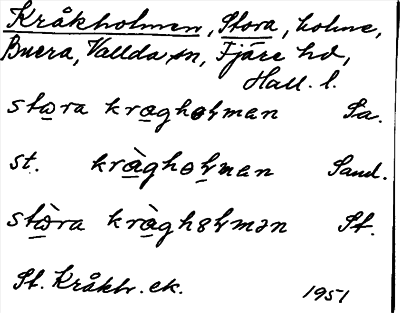 Kråkholmen, Stora, holme,
Buera, Vallda sn, Fjäre hd,
Hall. l.
stora kragholman Sa.
st. kràgholman Sand.
stòra kràgholmən St.
St. Kråkh. ek. 1951